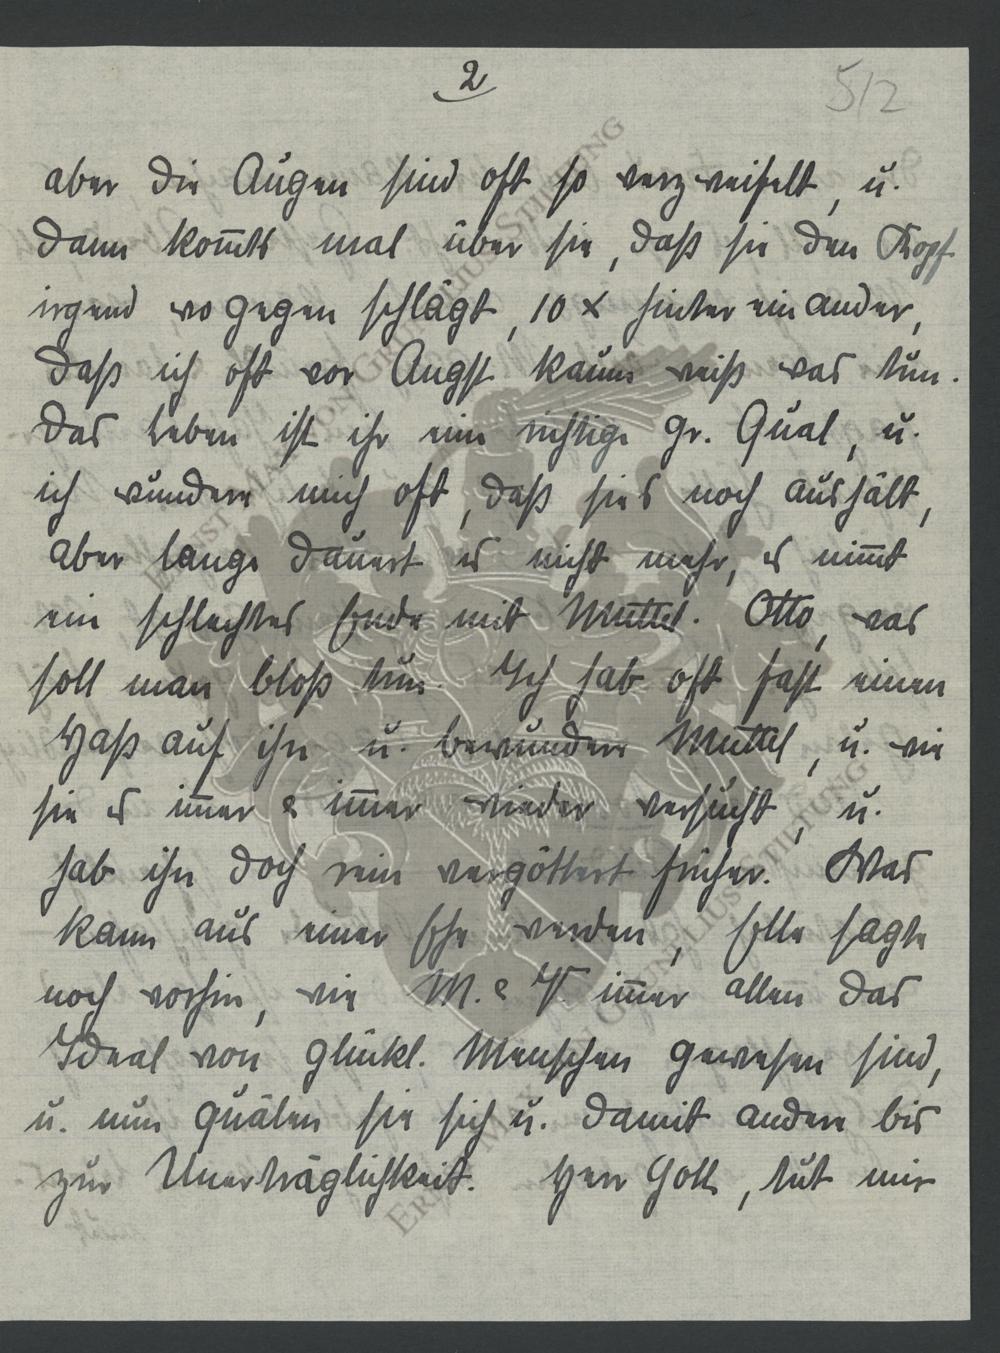 2
5/2
aber die Augen sind oft so verzweifelt, u.
dann kom̅ts mal über sie, daß sie den Kopf
irgend wo gegen schlägt, 10 x hinter einander,
daß ich oft vor Angst kaum weiß was tun.
Das Leben ist ihr eine richtige gr. Qual, u.
ich wundere mich oft, daß sie's noch aushält,
aber lange dauert es nicht mehr, es nim̅t
ein schlechtes Ende mit Muttel. Otto, was
soll man bloß tun. Ich hab oft fast einen
Haß auf ihn u. bewundere Muttel, u. wie
sie es im̅er & im̅er wieder versucht, u.
hab ihn doch rein vergöttert früher. Was
kann aus einer Ehe werden, Elle sagte
noch vorhin, wie M. & V. im̅er allen das
Ideal von glückl. Menschen gewesen sind,
u. nun quälen sie sich u. damit andere bis
zur Unerträglichkeit. Herr Gott, tut mir
ERNST MAX VON GRUNELIUS STIFTUNG
ERNST MAX VON GRUNELIUS STIFTUNG